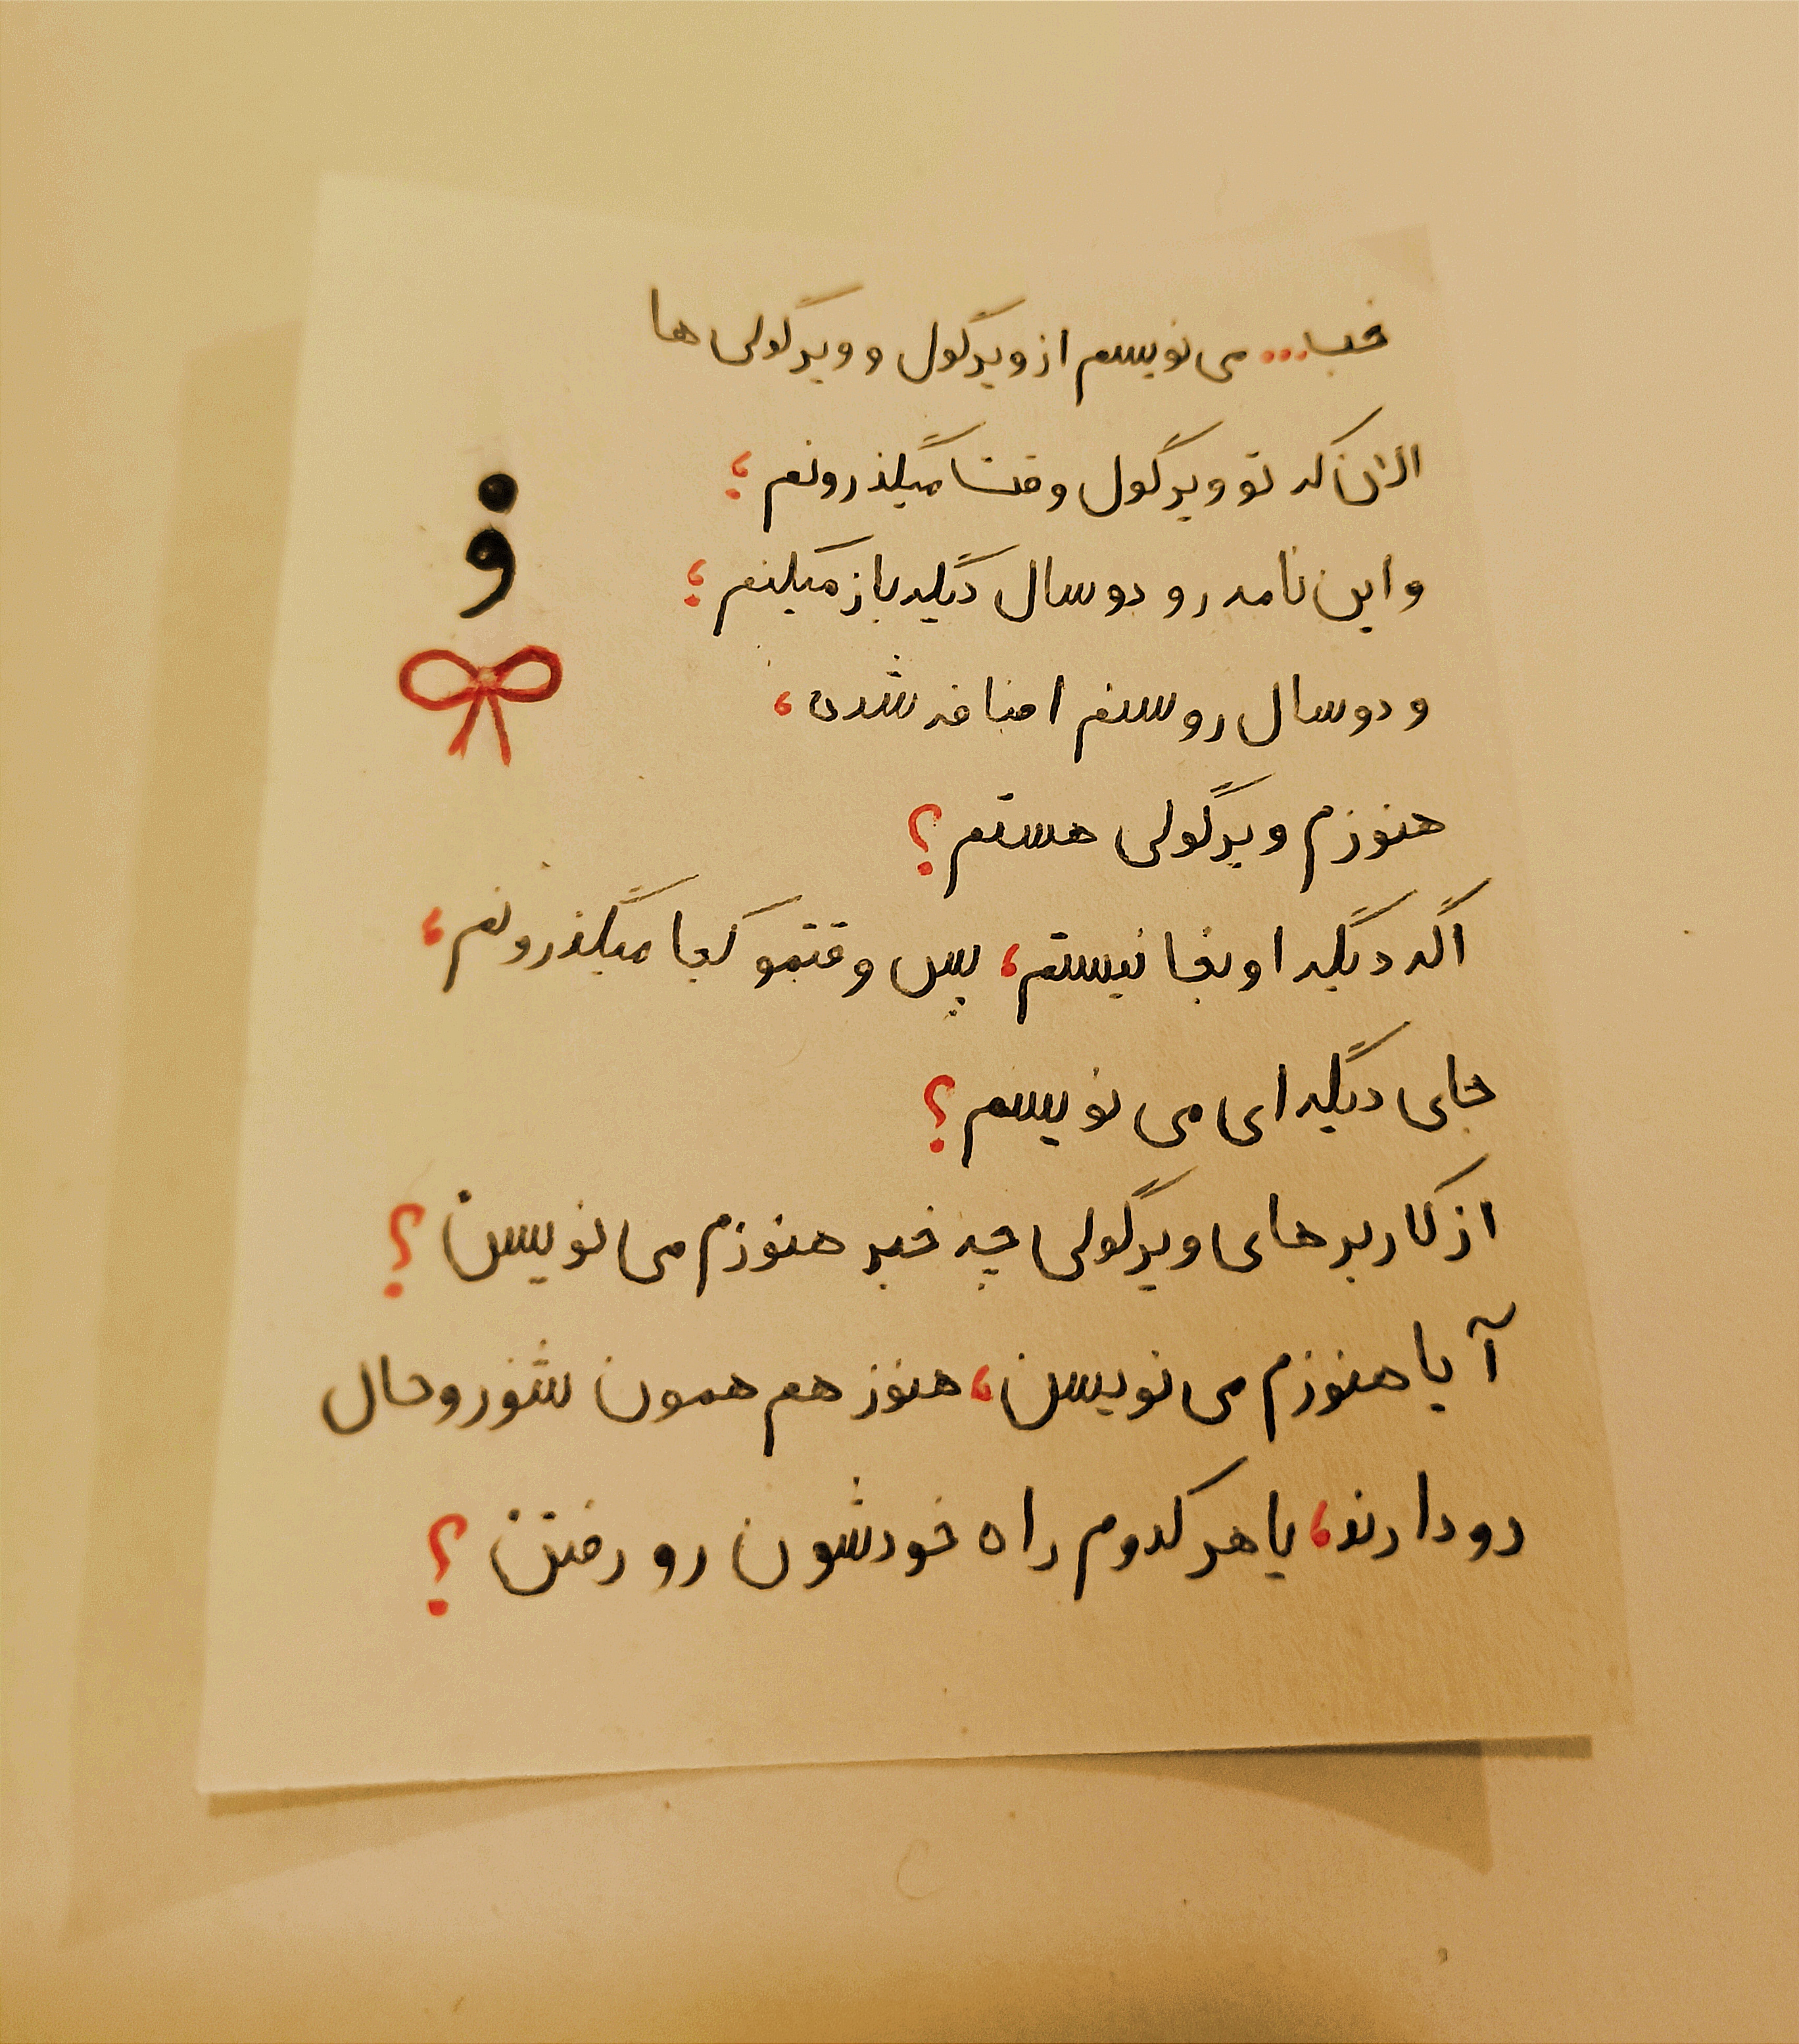 خب... می نویسم از ویرگول و ویرگولی ها
الان که تو ویرگول وقتـا میگذرونم؛
و این نامه رو دو سال دیگه باز میکنم؛
و دو سال رو سنم اضافه شدن،
هنوزم ویرگولی هستم؟
اگه دیگه اونجا نیستم، پس وقتمو کجا میگذرونم،
جای دیگه ای می نویسم؟
از کاربر های ویرگولی چه خبر هنوزم می نویسن؟
آیا هنوزم می نویسن، هنوز هم همون شور و حال
رو دارند، یا هر کدوم راه خودشون رو رفتن؟